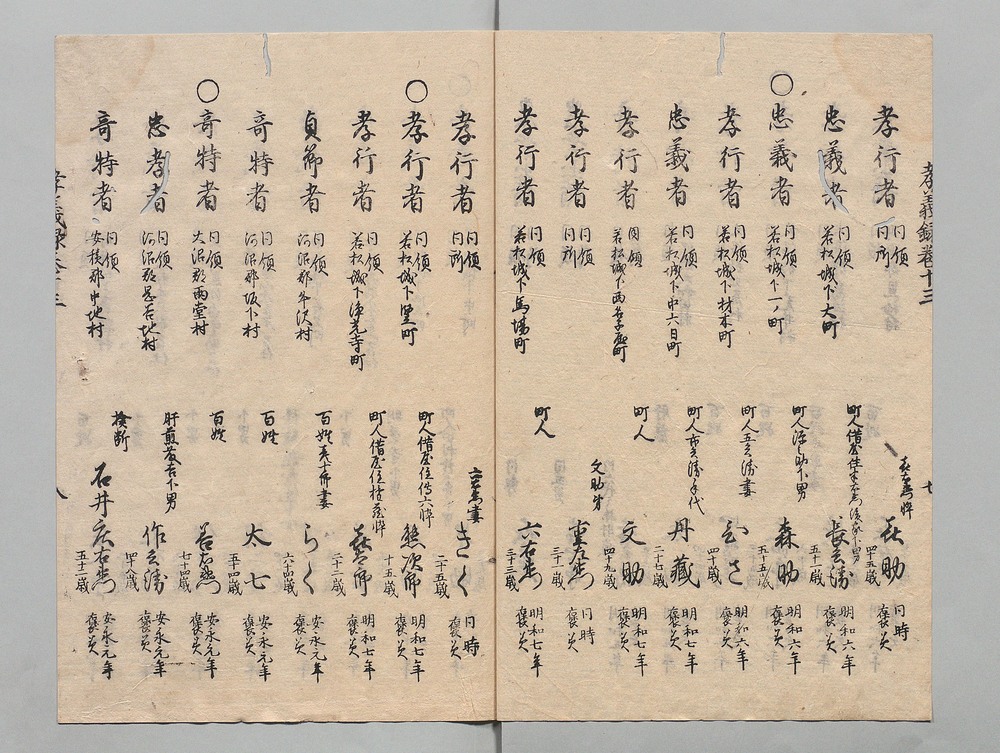 孝義録巻十三
孝行者 同領同所 喜右衛門悴 喜助 四十五歳 同時褒美
忠義者 同領若松城下大町 町人借屋住 五十一歳 明和六年褒美
○忠義者 同領若松城下一ノ町 町人 下男 森助 五十五歳 明和六年褒美
孝行者 同領若松城下材木町 町人 妻 さ 四十歳 明和六年褒美
忠義者 同領若松城下中六日町 町人 手代 丹蔵 二十七歳 明和七年褒美
孝行者 同領若松城下西名子屋町 町人 文助 四十九歳 明和七年褒美
孝行者 同領同所 文助弟 重左衛門 三十二歳 同時褒美
孝行者 同領若松城下馬場町 町人 六右衛門 三十三歳 明和七年褒美
七
孝行者 同領同所 妻 きく 二十五歳 同時褒美
○孝行者 同領若松城下堅町 町人借屋住伝六悴 熊次郎 十五歳 明和七年褒美
孝行者 同領若松城下浄光寺町 町人借屋住 悴 郎 二十二歳 明和七年褒美
貞節者 同領河沼郡牛沢村 百姓 妻 らく 六十四歳 安永元年褒美
奇特者 同領河沼郡坂下村 百姓 太七 五十四歳 安永元年褒美
○奇特者 同領大沼郡雨堂村 百姓 七十四歳 安永元年褒美
忠孝者 同領河沼郡 地村 肝煎 下男 作兵衛 四十八歳 安永元年褒美
奇特者 同領安積郡中地村 検断 石井広右衛門 五十一歳 安永元年褒美
孝義録巻十三
八